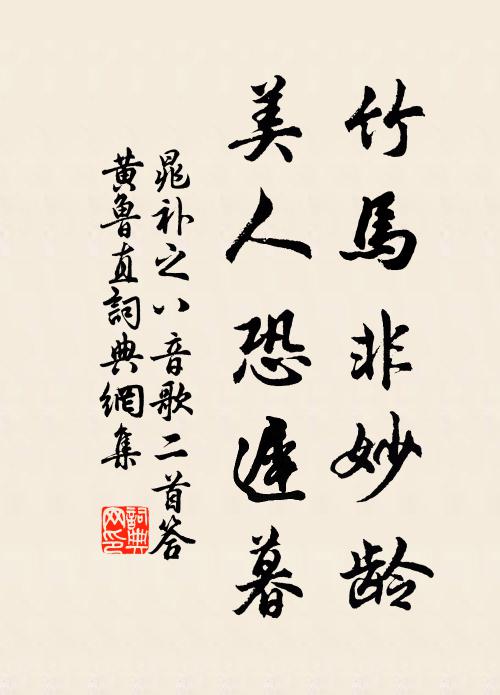 竹馬非妙龄
美人恐遲暮
晁补之八音歌二首答
黄魯直詞典網集
詞典网印